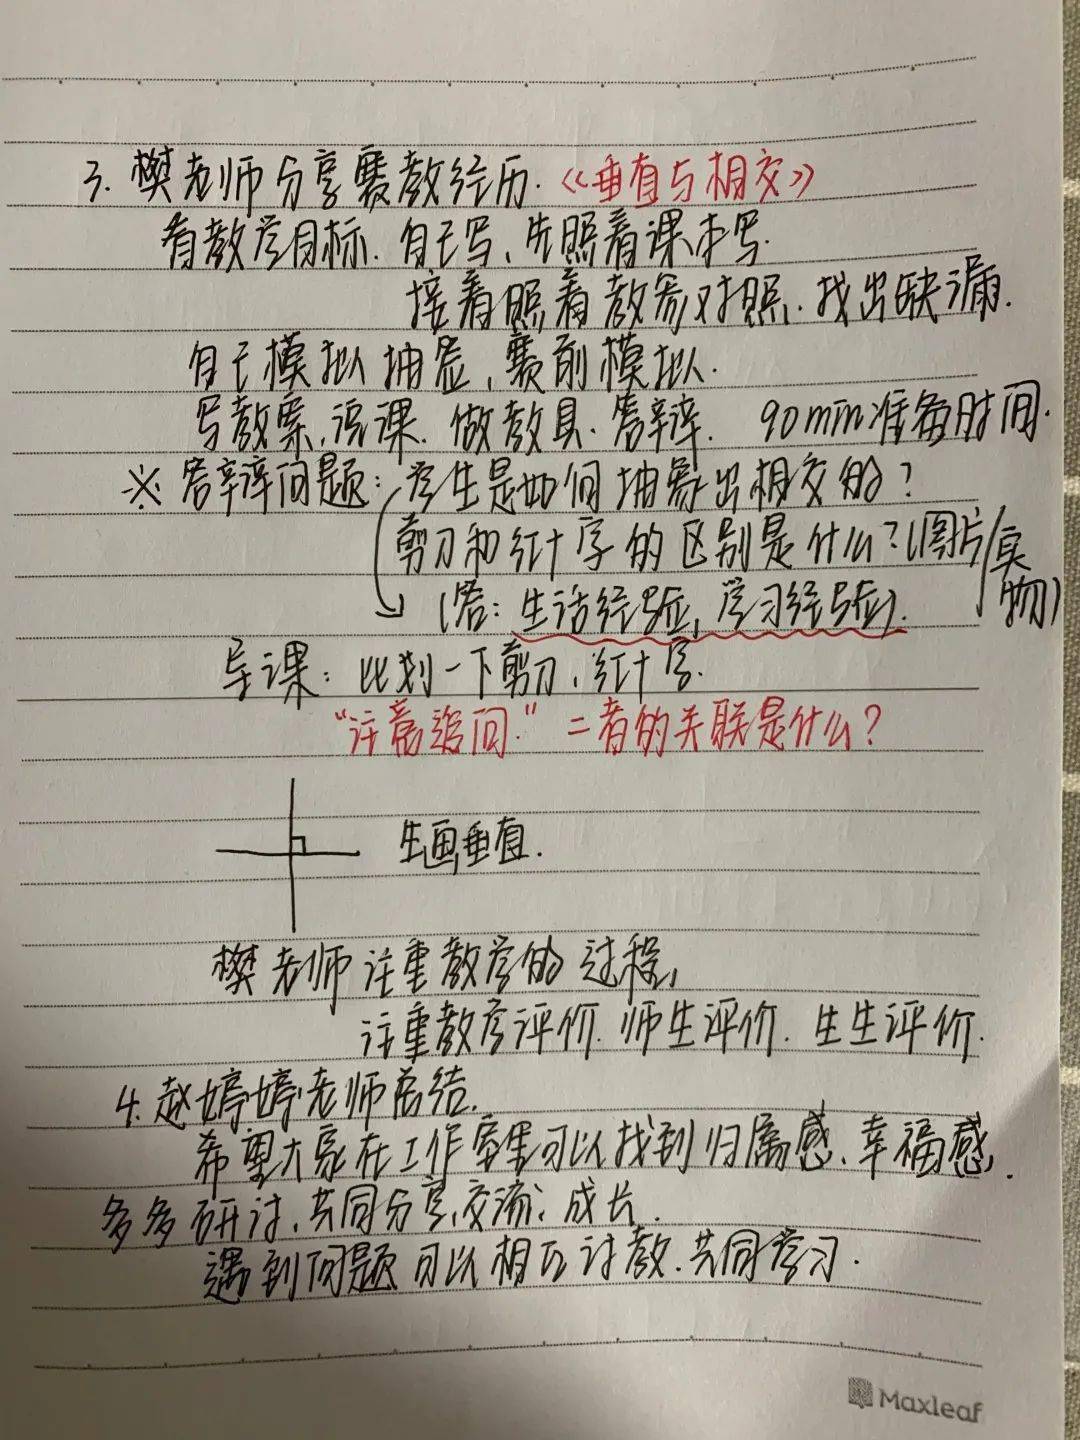 3. 樊老师分享赛教经历.《垂直与相交》
看教学目标.自己写、先照着课本写.
接着照着教参对照.找出缺漏.
自己模拟抽签、赛前模拟.
写教案、说课.做教具.答辩. 90min准备时间.
※答辩问题:学生是如何抽象出相交的?
剪刀和红十字的区别是什么?(图片/实物)
(答:生活经验,学习经验).
导课:比划一下剪刀、红十字.
"注意追问." 二者的关联是什么?
生画垂直.
樊老师注重教学的过程,
注重教学评价.师生评价.生生评价.
4. 赵婷婷老师总结.
希望大家在工作室里可以找到归属感、幸福感,
多多研讨、共同分享、交流、成长.
遇到问题可以相互讨教.共同学习.
Maxleaf